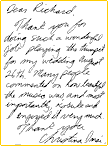 Dear Richard,
Thank you for
doing such a wonderful
job playing the trumpet
for my wedding August
26th! Many people
commented on how beautiful
the music was, and most
importantly, my husband and
enjoyed it very much!
Thank you
Christina